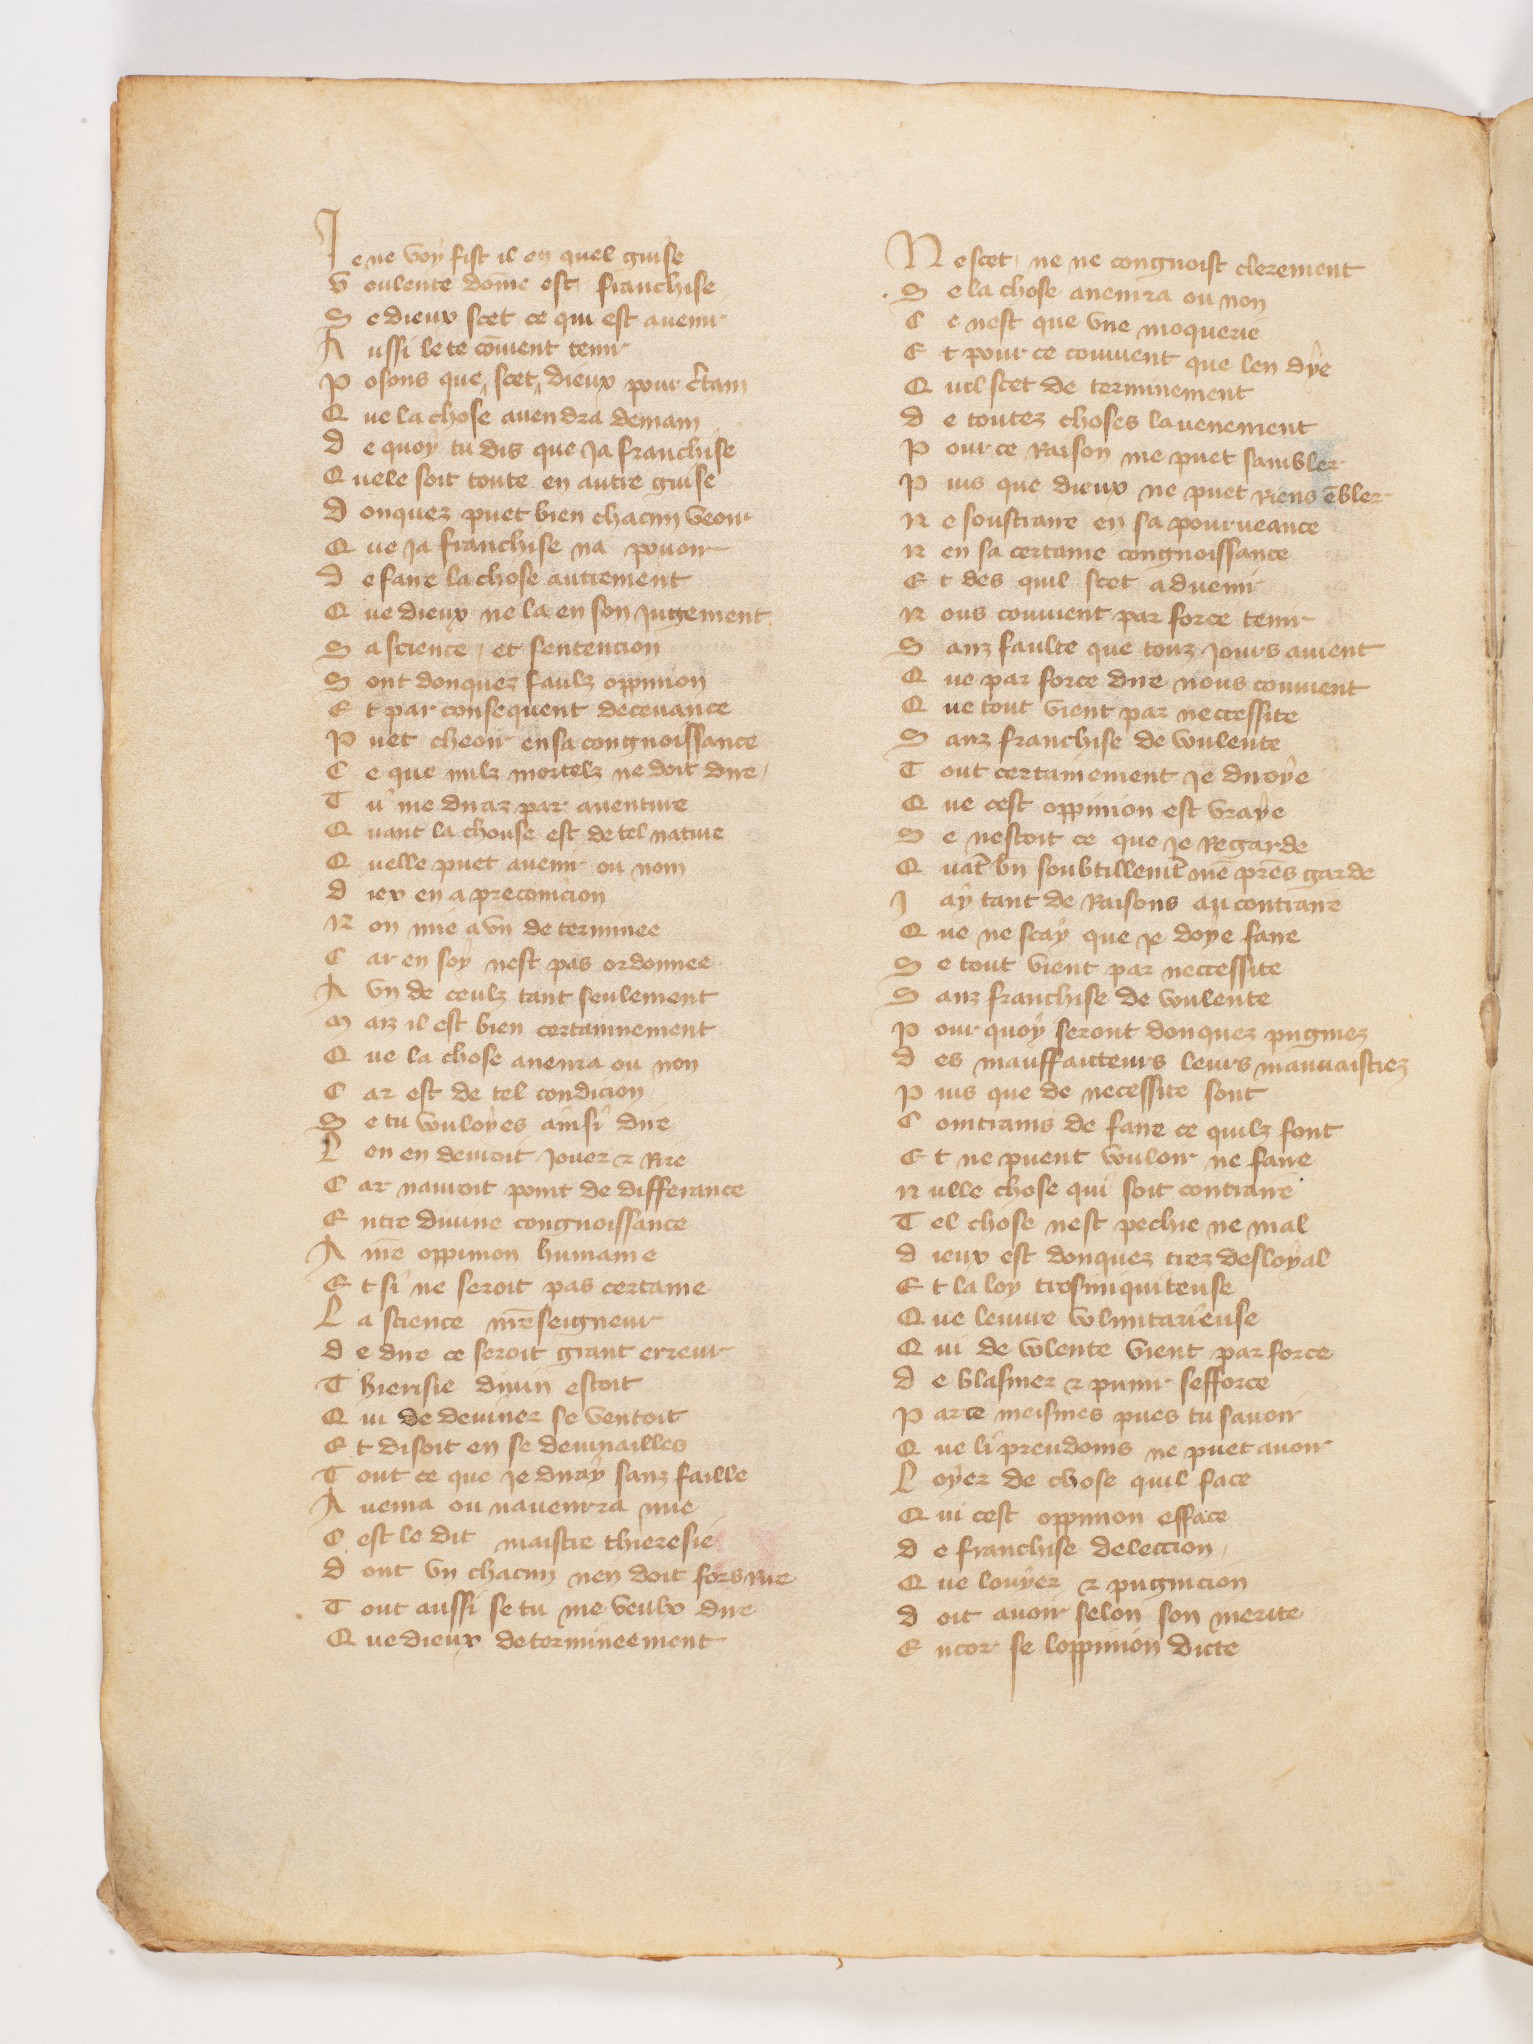 Je ne voy fist il en quel guise
Voulente dōme est franchise
Se dieux scet ce qui est auenir
Aussi le te cōuient tenir
Posons que scet dieux pour c̄tain
Que la chose auendra demain
De quoy tu dis que ja franchise
Quele soit toute en autre guise
Donquez puet bien chacun veoir
Que ja franchise na pouoir
De faire la chose autrement
Que dieux ne la en son jugement
Sa science et sentencion
Sont donquez faulz oppinion
Et par consequent deceuance
Puet cheoir en sa congnoissance
Ce que nulz mortelz ne doit dire
Tu me diraz par auenture
Quant la chouse est de tel nature
Quelle puet auenir ou nom
Diex en a preconicion
Non mie a vn de terminee
Car en soy nest pas ordonnee
A vn de ceulz tant seulement
Maiz il est bien certainnement
Que la chose auenra ou non
Car est de tel condicion
Se tu vouloyes ainsi dire
Len en deuroit jouer & rire
Car nauroit point de differance
Entre diuine congnoissance
A mē oppinion humaine
Et si ne seroit pas certaine
La science nrē seigneur
De dire ce seroit grant erreur
Thierisie diuin estoit
Qui de deuiner se ventoit
Et disoit en se deuinailles
Tout ce que je diray sanz faille
Auenra ou nauenrra mie
Cest le dit maistre thieresie
Dont vn chacun nen doit fors rire
Tout aussi se tu me veulx dire
Que dieux determineement
Ne scet ne ne congnoist clerement
Se la chose auenrra ou non
Ce nest que vne moquerie
Et pour ce conuient que len dye
Quil scet de terminement
De toutez choses lauenement
Pour ce raison me puet sambler
Puis que dieux ne puet riens ēbler
Ne soustraire en sa pourueance
N en sa certaine congnoissance
Et des quil scet aduenir
Nous conuient par force tenir
Sanz faulte que touz jours auient
Que par force dire nous conuient
Que tout vient par neccessite
Sanz franchise de voulente
Tout certainement je diroye
Que cest oppinion est vraye
Se nestoit ce que je regarde
Quāt bn̄ soubtillemēt mē prēs garde
Jay tant de raisons au contraire
Que ne scay que je doye faire
Se tout vient par neccessite
Sanz franchise de voulente
Pour quoy seront donquez pugniez
Des mauffaitteurs leurs mauuaistiez
Puis que de necessite sont
Contrains de faire ce quilz font
Et ne puent vouloir ne faire
Nulle chose qui soit contraire
Tel chose nest pechie ne mal
Dieux est donquez trez desloyal
Et la loy tresiniquiteuse
Que leuure vluntarieuse
Qui de vlente vient par force
De blasmer & punir sefforce
Par te meismes pues tu sauoir
Que li preudoms ne puet auoir
Loyer de chose quil face
Qui cest oppinion efface
De franchise deleccion
Que louyer & pugnicion
Doit auoir selon son merite
Encor se loppinion dicte